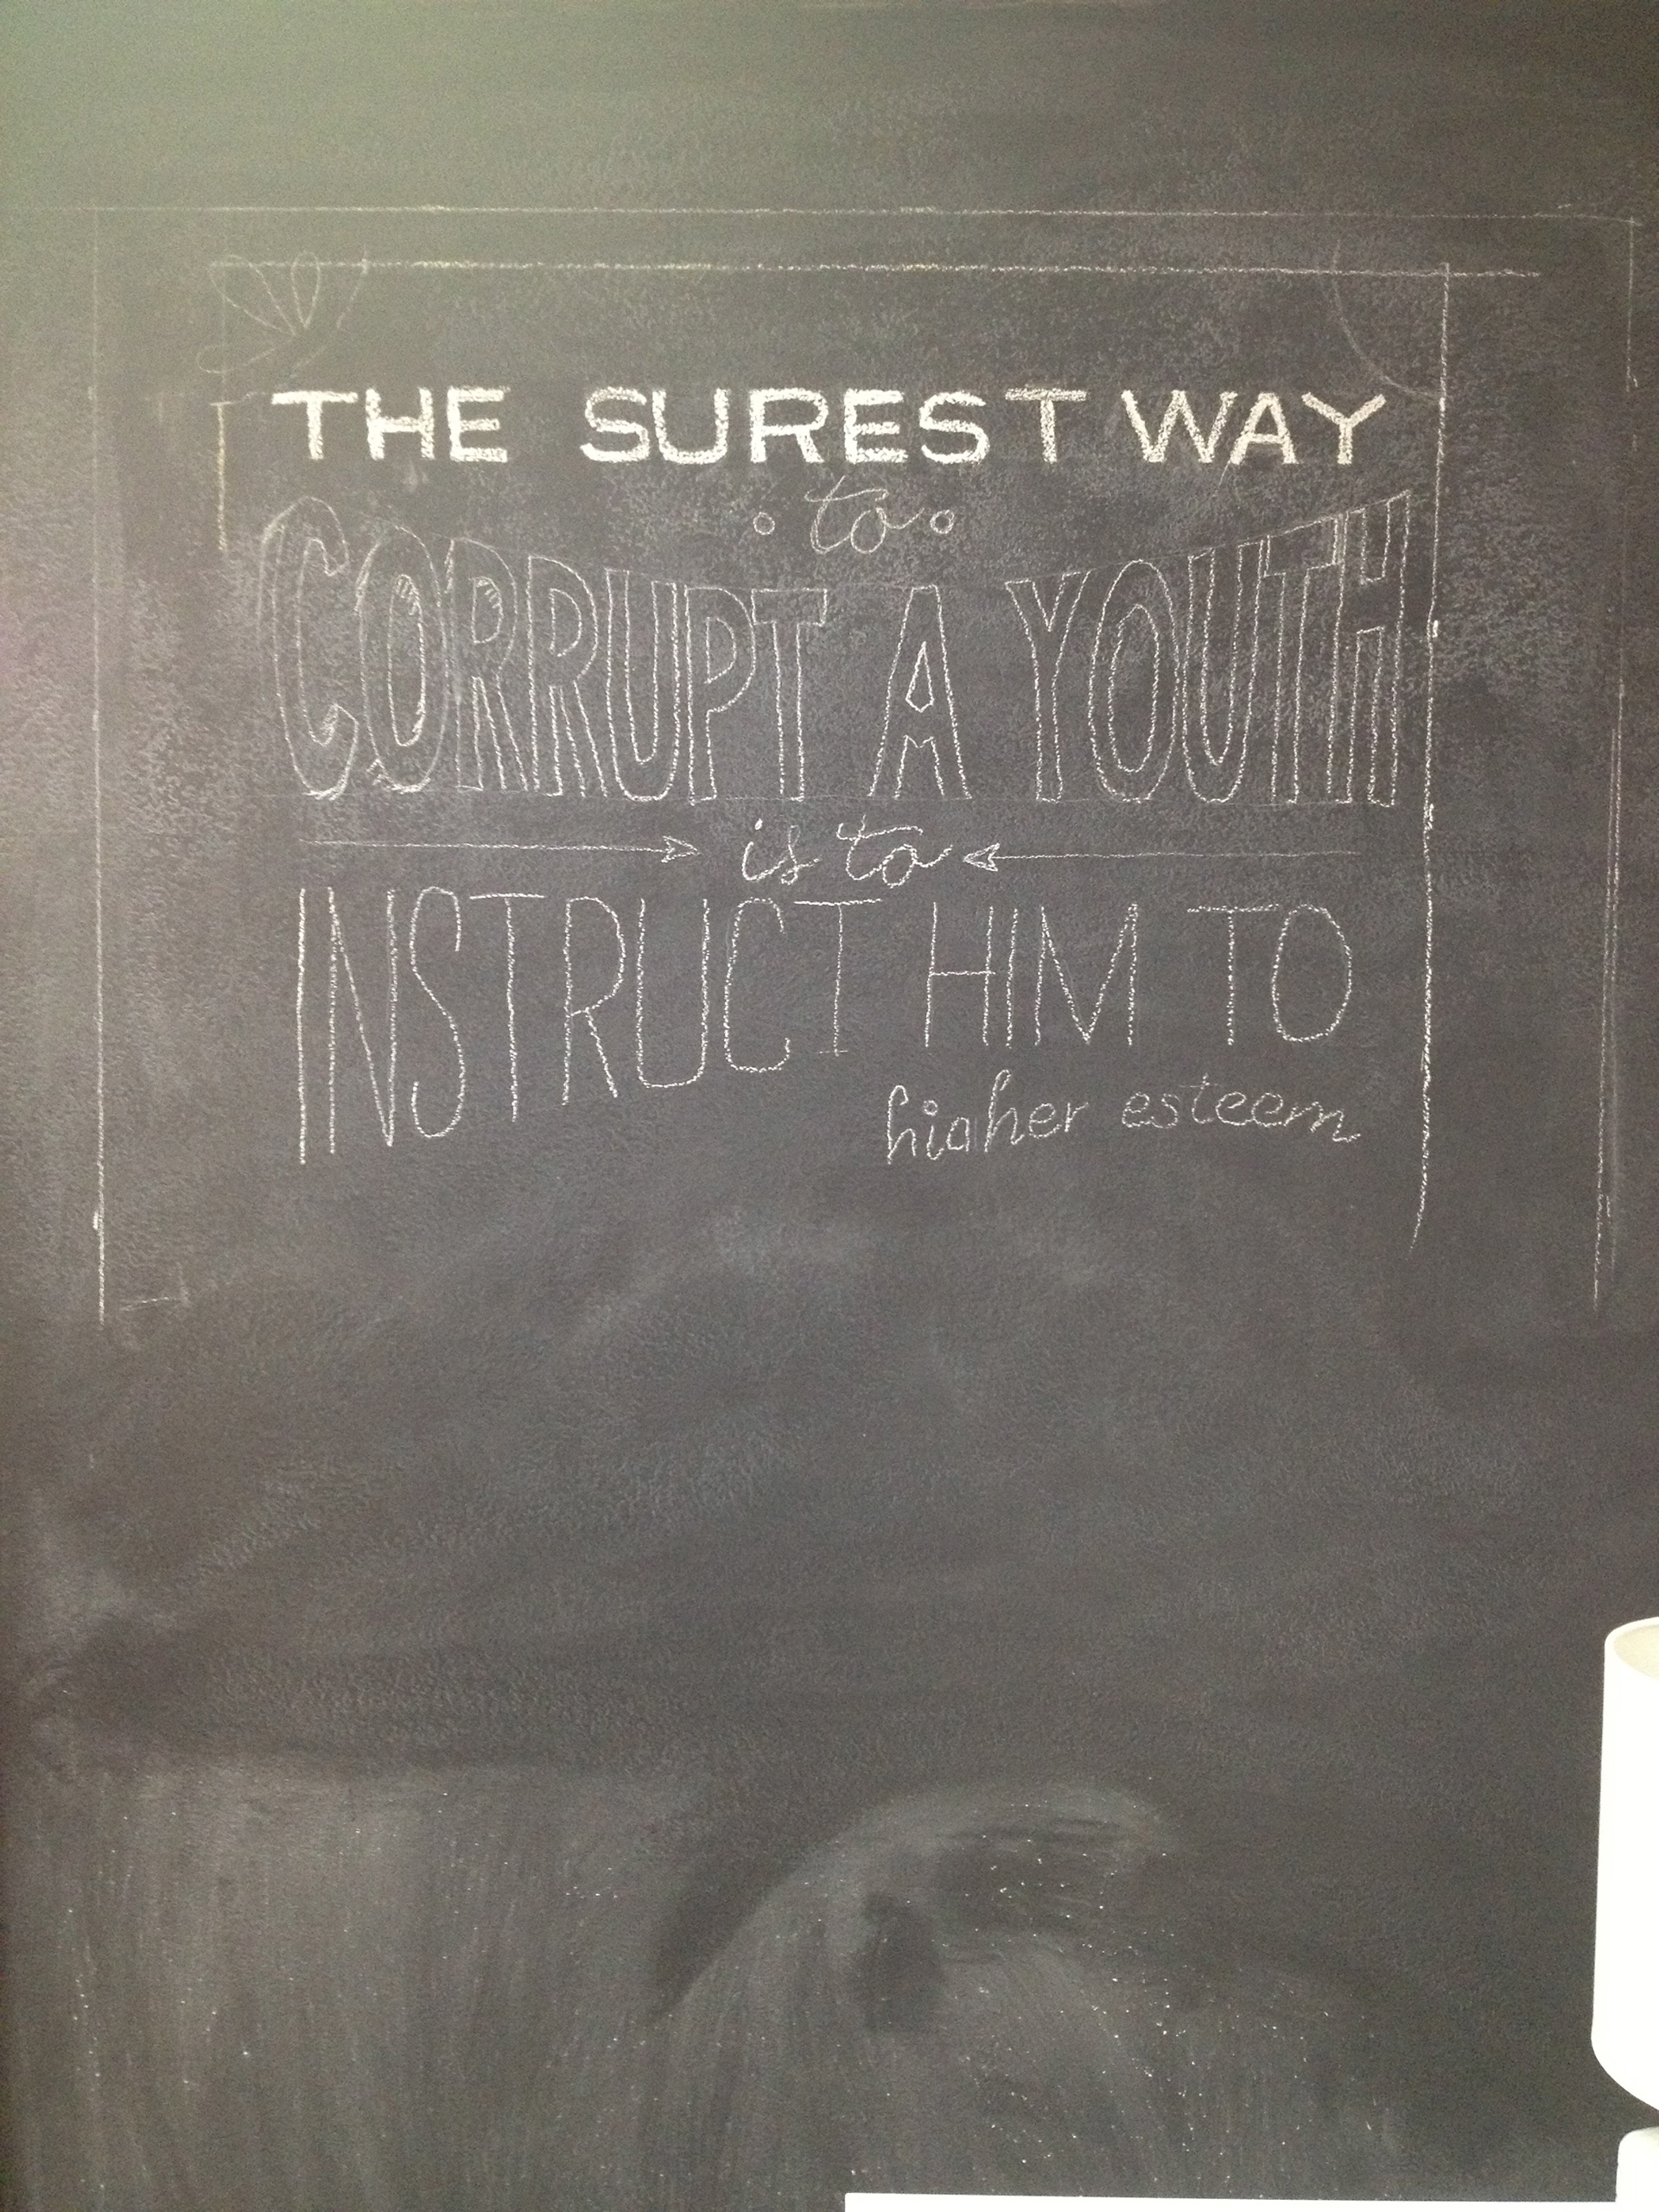 THE SUREST WAY
to
CORRUPT A YOUTH
is to
INSTRUCT HIM TO
higher esteem